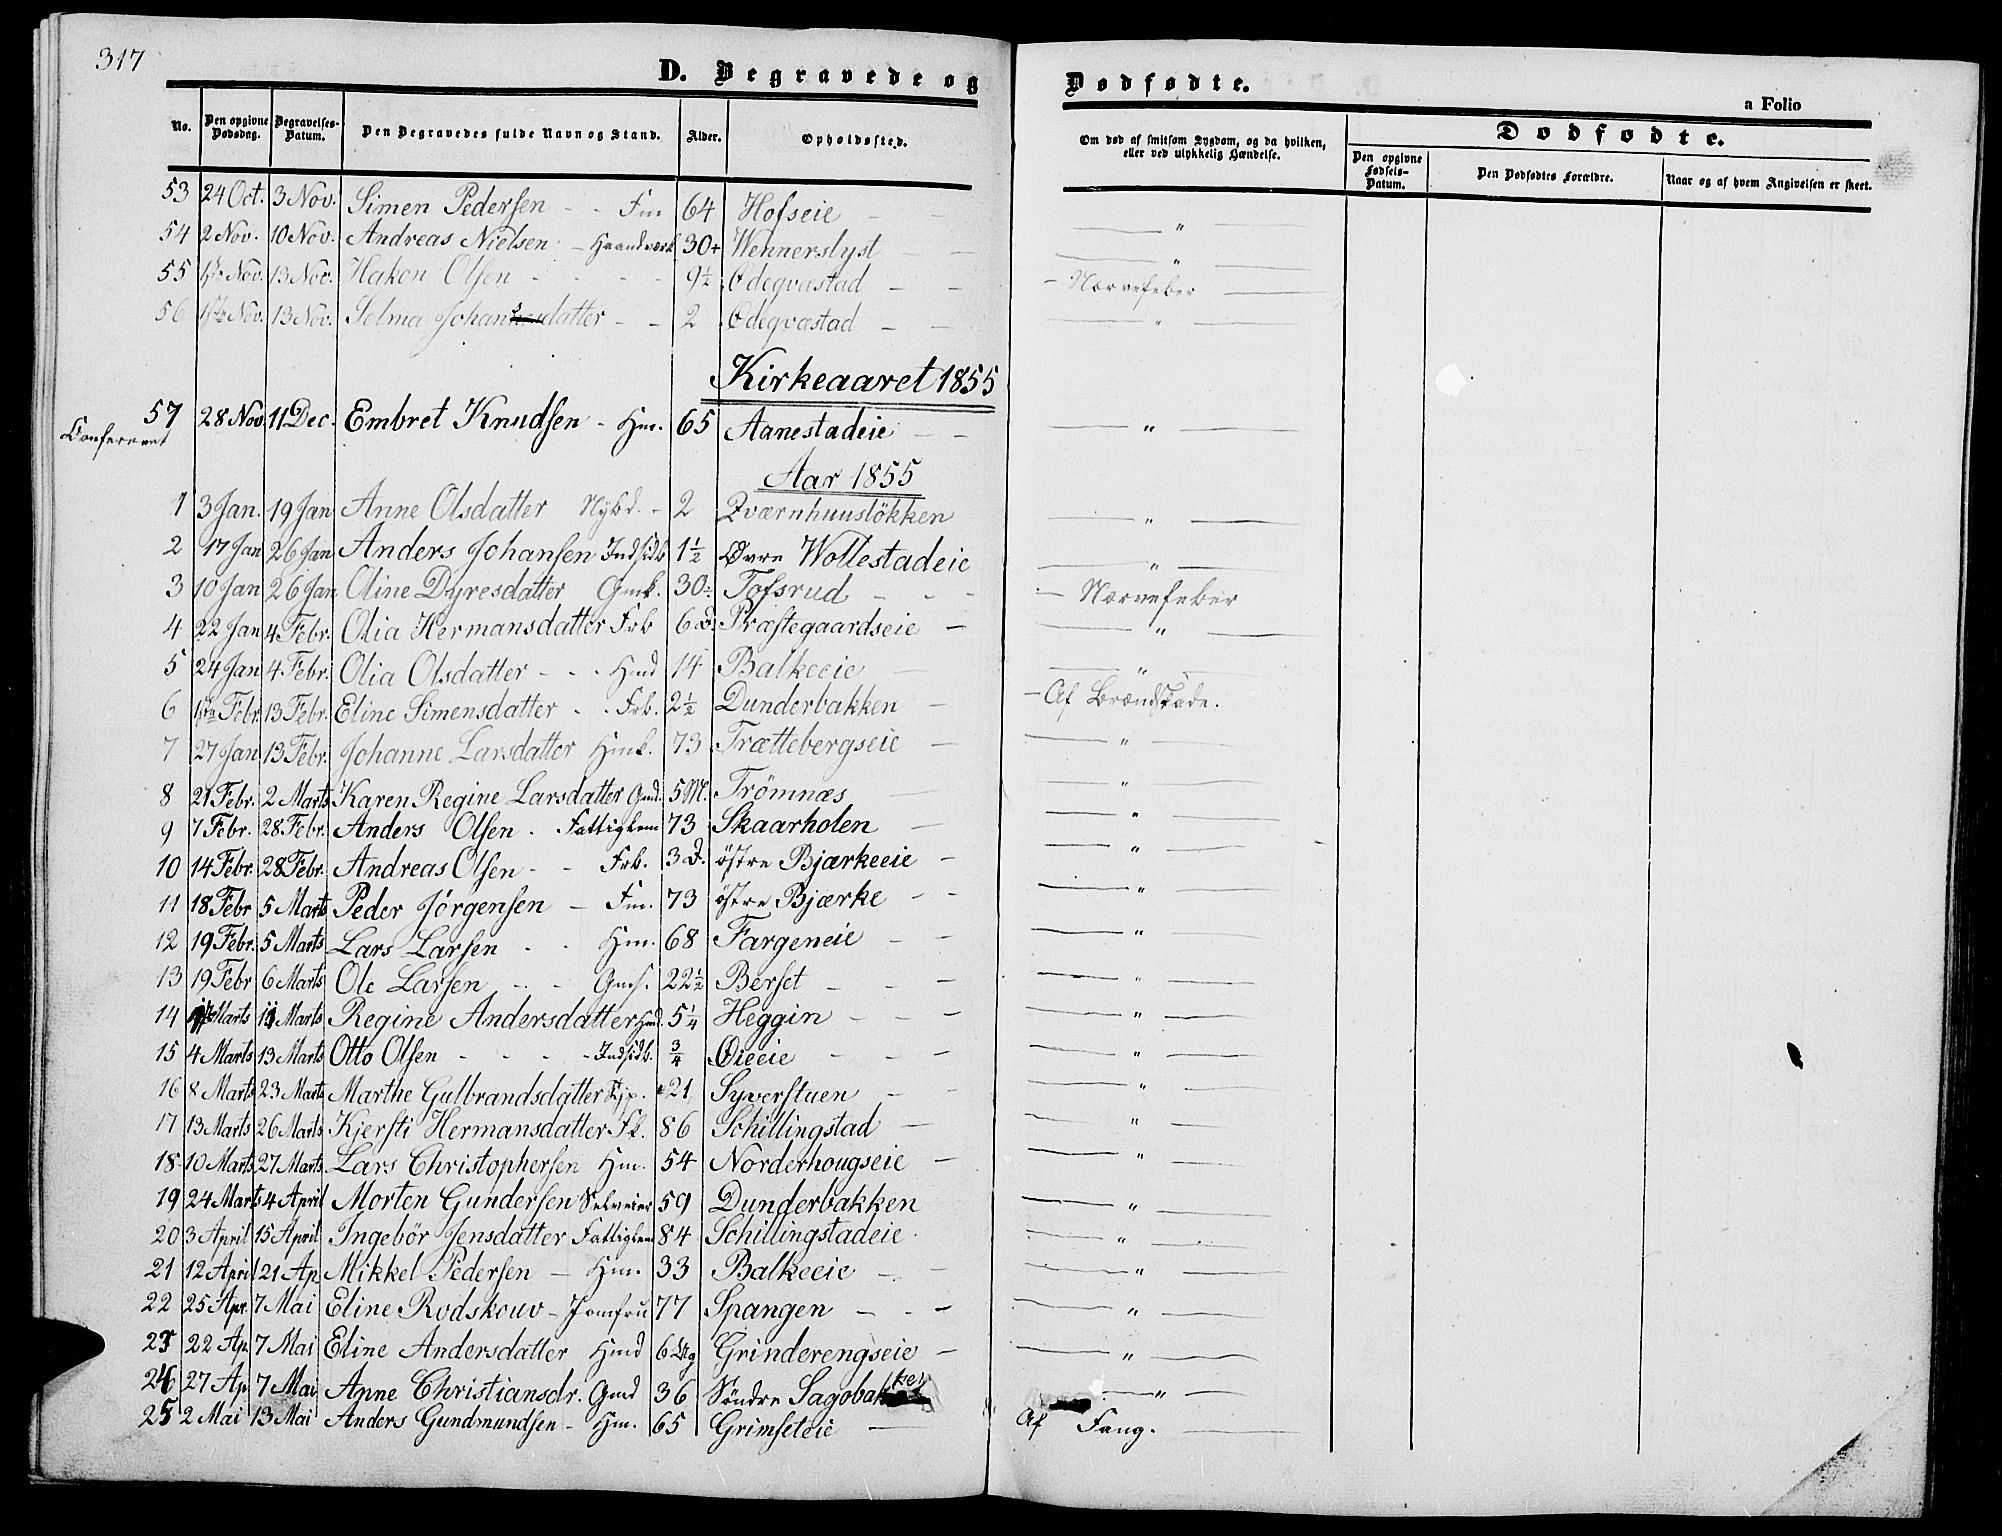 317
D. Begravede og Dødfødte.
a Folio
No. Den opgivne Dødsdag. Begravelses-Datum. Den Begravedes fulde Navn og Stand. Alder. Opholdssted. Om død af smitsom Sygdom, og da hvilken, eller ved ulykkelig Hændelse. Dødfødte.
Den opgivne Fødsels-Datum. Den Dødfødtes Forældre. Naar og af hvem Angivelsen er skeet.
53 24 Oct. 3 Nov. Simen Pedersen - - Fm 64 Hofseie - - — " —
54 2 Nov. 10 Nov. Andreas Nielsen - Haandværk 30+ Wennerslyst - - — " —
55 Nov. 13 Nov. Haken Olsen - - - - 9½ Ødegvæstad - - - Nærvefeber —
56 Nov. 13 Nov. Selma Johansdatter - - 2 Ødegvæstad - - — " —
Kirkeaaret 1855
57 28 Nov 11 Dec. Embret Knudsen - Hm. 65 Aanestadeie - - — " —
Confereret
Aar 1855
1 3 Jan. 19 Jan Anne Olsdatter Nybd. - 2 Qværnhuusløkken — " —
2 17 Jan 26 Jan Anders Johansen Indsidb 1½ Øvre Wollestadeie — " —
3 10 Jan 26 Jan Oline Dyresdatter Gmk. 30÷ Tofsrud - - - — Nærvefeber
4 22 Jan 4 Febr. Olia Hermansdatter Frb 6 D. Præstegaardseie - — " —
5 24 Jan 4. Febr. Olia Olsdatter - - - Hmd 14 Balkeeie - — " —
6 Febr. 13 Febr. Eline Simensdatter - - Frb. 2½ Dunderbakken - - Af Brændskade.
7 27 Jan 13 Febr. Johanne Larsdatter Hmk. 73 Trættebergseie - — " —
8 21 Febr. 2 Marts Karen Regine Larsdatter Gmd. 5 M. Trömnæs - — " —
9 7 Febr. 28. Febr. Anders Olsen - Fattiglem 73 Skaarholen - — " —
10 14 Febr. 28 Febr. Andreas Olsen - - Frb. 3 D. østre Bjærkeeie - — " —
11 18 Febr 5 Marts Peder Jørgensen - Fm. 73 østre Bjærke - - — " —
12 19 Febr. 5 Marts Lars Larsen - - Hm. 68 Fargeneie - - — " —
13 19 Febr 6 Marts Ole Larsen - - Gms. 22½ Berset - - - — " —
14 Marts 11 Marts Regine Andersdatter Hmd. 5¼ Heggin - - - — " —
15 4 Marts 13 Marts Otto Olsen - - - - Indsidb. ¾ Øieeie - - - — " —
16 8 Marts 23 Marts Marthe Gulbrandsdatter Tjp. 21 Syverstuen - - — " —
17 13 Marts 26 Marts Kjersti Hermansdatter Fk. 86 Schillingstad - — " —
18 10 Marts 27 Marts. Lars Christophersen Hm. 54 Norderhougseie - — " —
19 24 Marts 4 April Morten Gundersen Selveier 59 Dunderbakken — " —
20 3 April 15 April Ingebör Jensdatter Fattiglem 84 Schillingstadeie — " —
21 12 April 21 Ap. Mikkel Pedersen - Hm. 33 Balkeeie - - — " —
22 25 Apr. 7 Mai Eline Rodskouv - Jomfru 77 Spangen - - - — " —
23 22 Ap. 7 Mai Eline Andersdatter Hmd 6 Grinderengseie - — " —
24 27 Ap 7 Mai Anne Christiansdr. Gmd 36 Söndre Sagobakken — " —
25 2 Mai 13 Mai Anders Gundmundsen - Hm. 65 Grimseteie - Af Fang. —